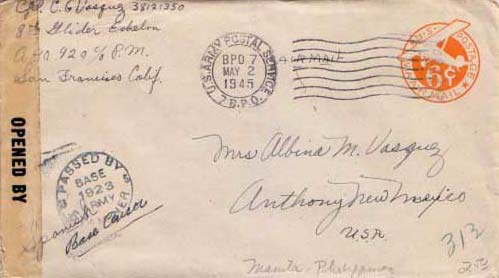 Cpl. C. G. Vasquez 38121350
8th Glider Echelon
A.P.O. 920 % P.M.
San Francisco Calif.
U.S. ARMY POSTAL SERVICE
BPO 7
MAY 2
1945
7 B.P.O.
AIR MAIL
U.S. POSTAGE
6¢
AIR MAIL
OPENED BY
PASSED BY
BASE
1923
ARMY
Spanish
Base Censor
Mrs Albina M. Vasquez
Anthony New Mexico
U.S.A.
Manila - Philippines
313